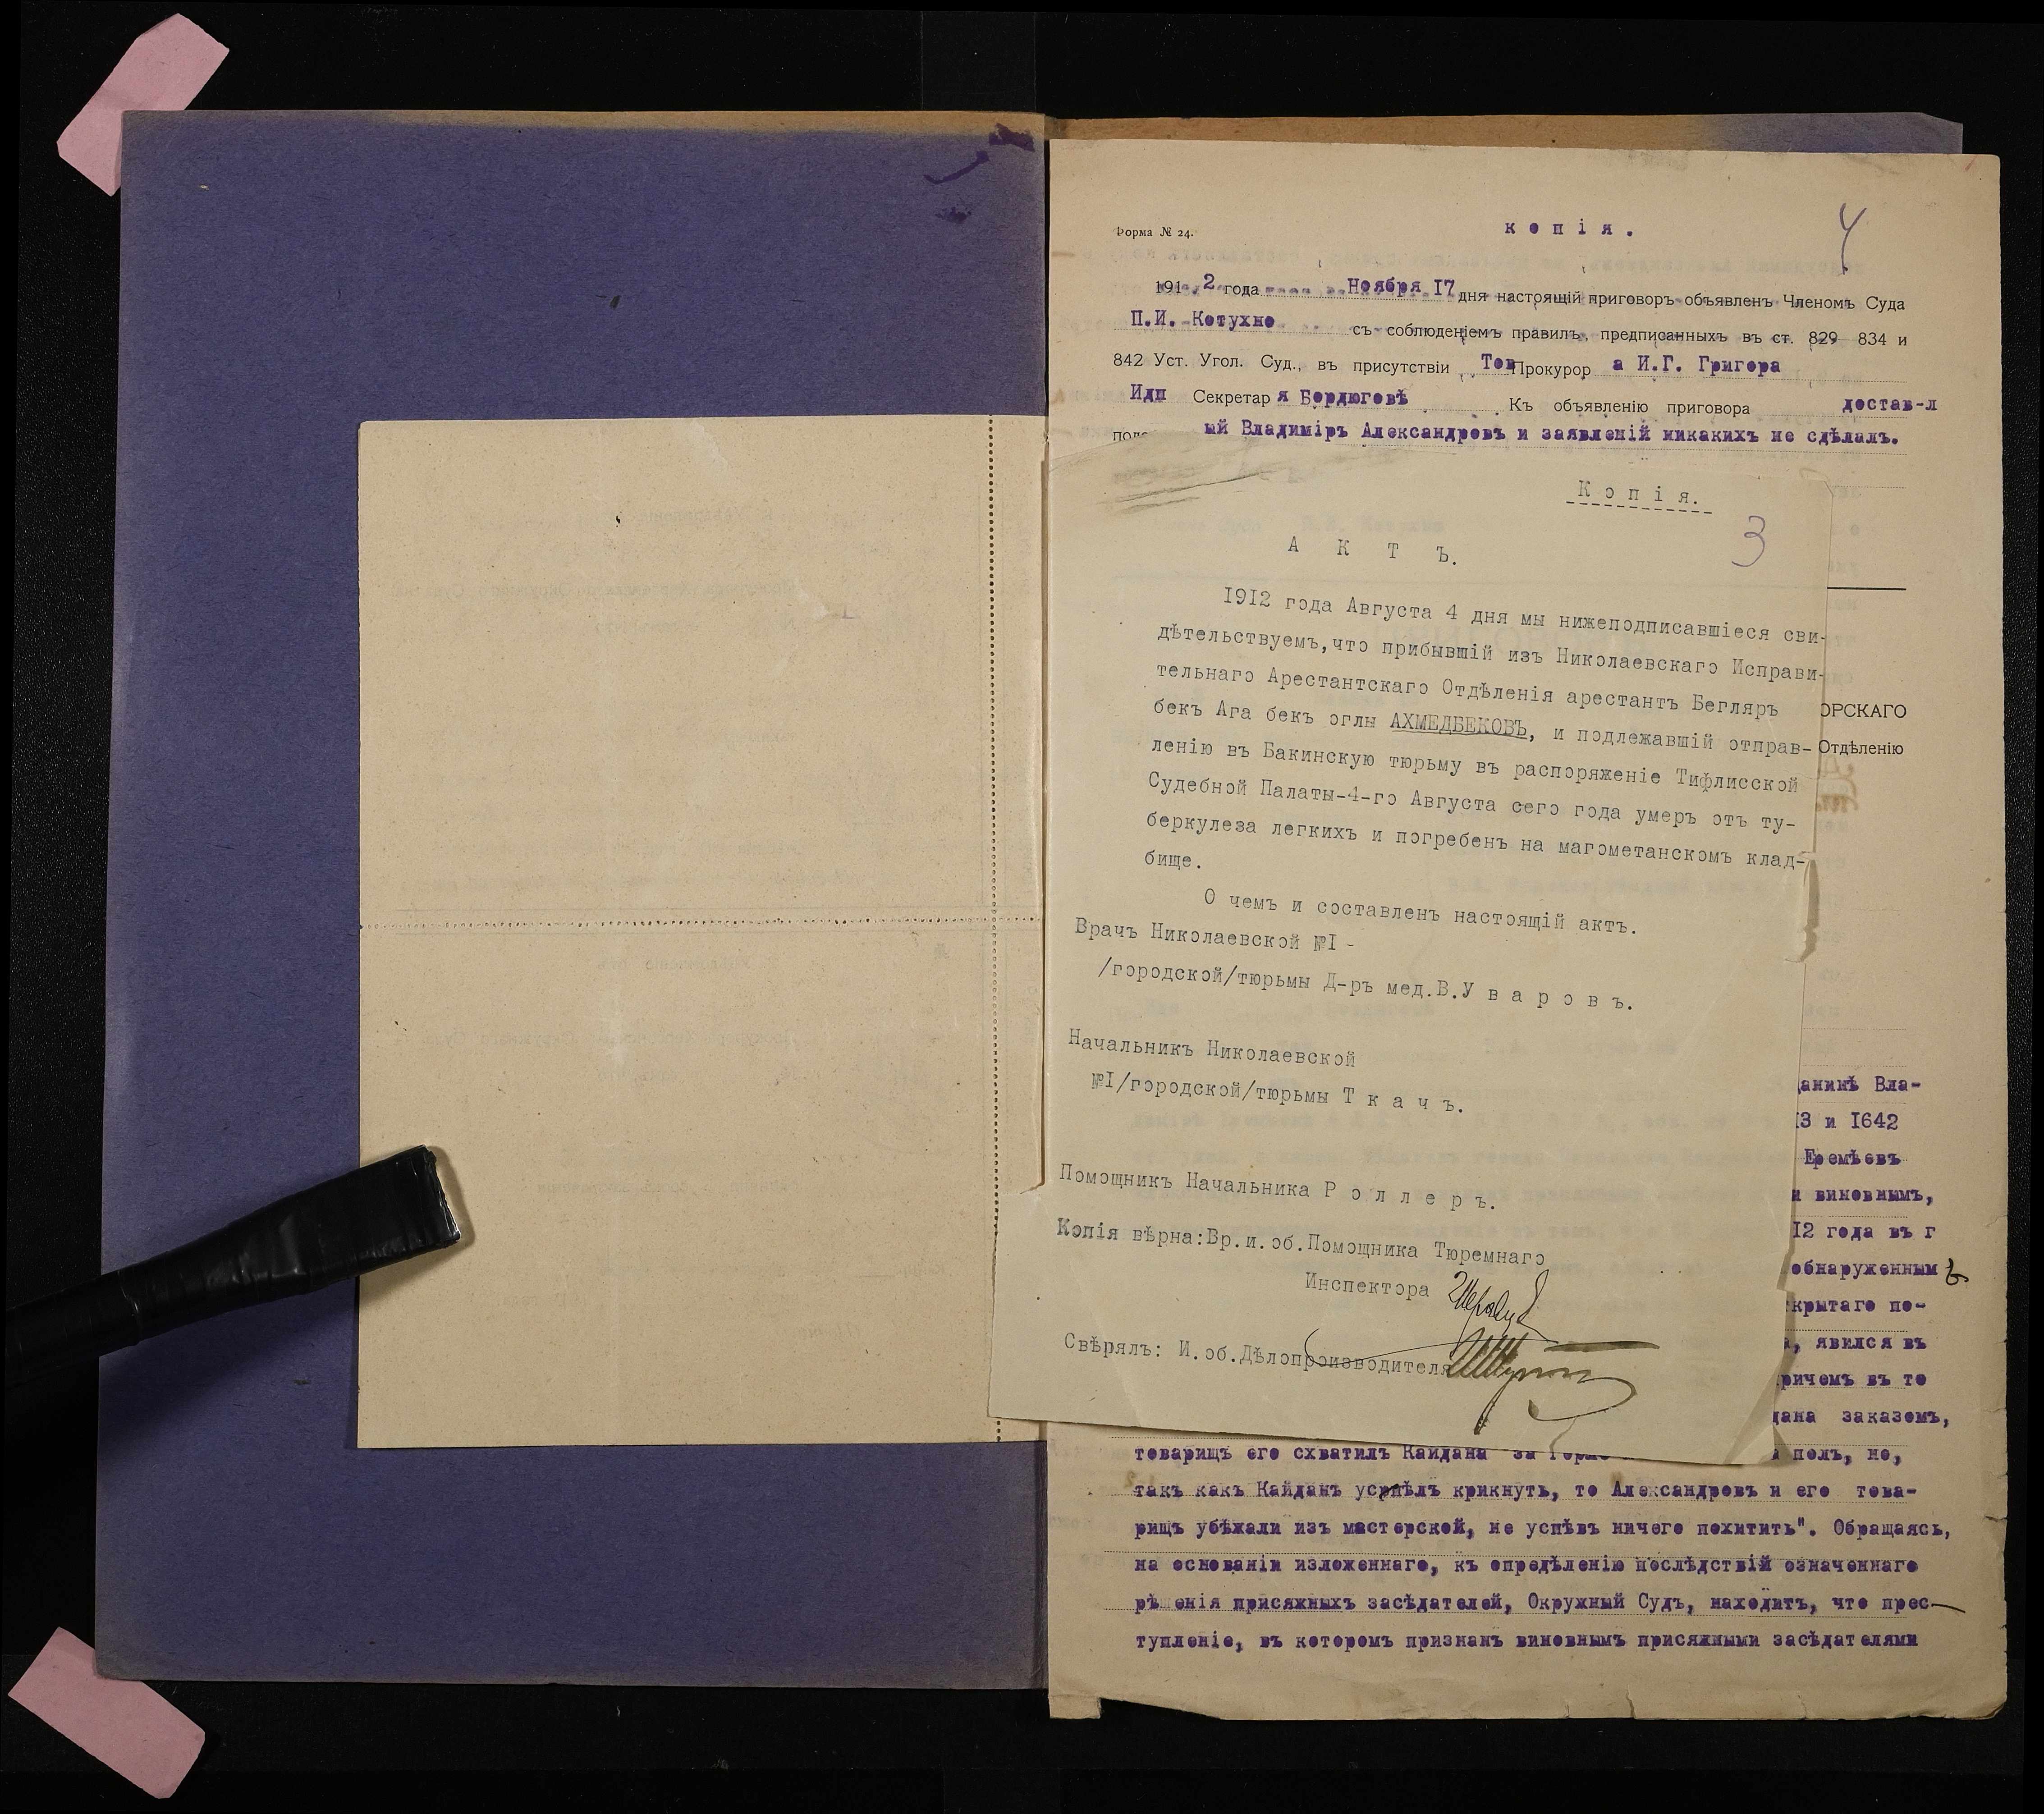 Форма № 24.
копія.
4
191 2 года Ноября 17 дня настоящій приговоръ объявленъ Членомъ Суда
П.И. Котухно съ соблюденіемъ правилъ, предписанныхъ въ ст. 829 834 и
842 Уст. Угол. Суд., въ присутствіи Тов Прокурор а И.Г. Григора
Идп Секретар я Бордюговѣ Къ объявленію приговора достав-л
ый Владиміръ Александровъ и заявленій никакихъ не сдѣлалъ.
Копія.
3
АКТЪ.
1912 года Августа 4 дня мы нижеподписавшіеся сви-
дѣтельствуемъ,что прибывшій изъ Николаевскаго Исправи-
тельнаго Арестантскаго Отдѣленія арестантъ Бегляръ
бекъ Ага бекъ оглы АХМЕДБЕКОВЪ, и подлежавшій отправ-
ленію въ Бакинскую тюрьму въ распоряженіе Тифлисской
Судебной Палаты-4-го Августа сего года умеръ отъ ту-
беркулеза легкихъ и погребенъ на магометанскомъ клад-
бище.
О чемъ и составленъ настоящій актъ.
Врачъ Николаевской №I -
/городской/тюрьмы Д-ръ мед.В.Уваровъ.
Начальникъ Николаевской
№I/городской/тюрьмы Ткачъ.
Помощникъ Начальника Роллеръ.
Копія вѣрна:Вр.и.об.Помощника Тюремнаго
Инспектора
Свѣрялъ: И.об.Дѣлопроизводителя
ОРСКАГО
Отдѣленію
данинѣ Вла-
13 и 1642
Еремѣевъ
и виновнымъ,
12 года въ г
обнаруженнымъ
крытаго по-
а, явился въ
ричемъ въ то
дана заказомъ,
товарищъ его схватилъ Кайдана за полъ, но,
такъ какъ Кайданъ успѣлъ крикнуть, то Александровъ и его това-
рищъ убѣжали изъ мастерской, не успѣвъ ничего похитить". Обращаясь,
на основаніи изложеннаго, къ опредѣленію послѣдствій означеннаго
рѣшенія присяжныхъ засѣдателей, Окружный Судъ, находитъ, что прес-
тупленіе, въ которомъ признанъ виновнымъ присяжными засѣдателями